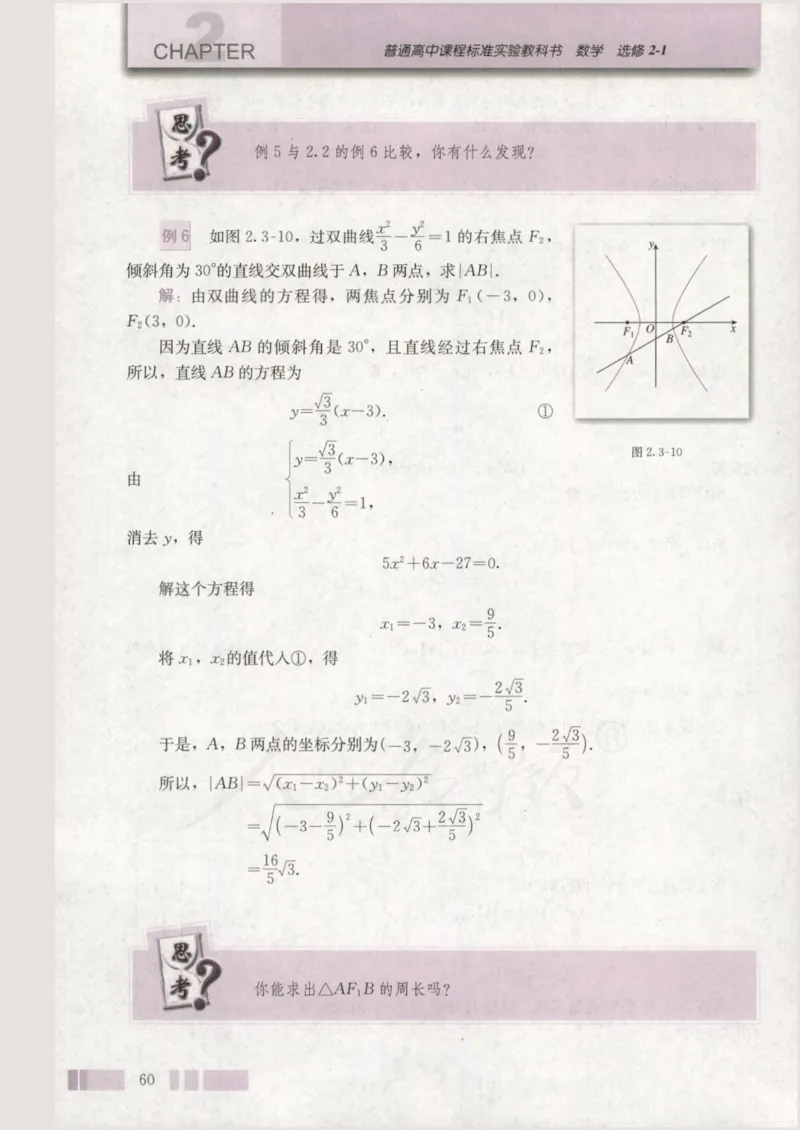 2
CHAPTER
普通高中课程标准实验教科书 数学 选修 2-1
思考?
例 5 与 2.2 的例 6 比较，你有什么发现?
例 6 如图 2.3-10，过双曲线 x²/3 − y²/6 = 1 的右焦点 F₂，
倾斜角为 30°的直线交双曲线于 A，B 两点，求|AB|.
解：由双曲线的方程得，两焦点分别为 F₁(−3，0)，
F₂(3，0).
因为直线 AB 的倾斜角是 30°，且直线经过右焦点 F₂，
所以，直线 AB 的方程为
y=√3/3(x−3). ①
y
F₁ O B F₂ x
A
图 2.3-10
由
y=√3/3(x−3)，
x²/3 − y²/6 = 1，
消去 y，得
5x²+6x−27=0.
解这个方程得
x₁=−3，x₂=9/5.
将 x₁，x₂的值代入①，得
y₁=−2√3，y₂=−2√3/5.
于是，A，B 两点的坐标分别为(−3，−2√3)，(9/5，−2√3/5).
所以，|AB|=√((x₁−x₂)²+(y₁−y₂)²)
=√((−3−9/5)²+(−2√3+2√3/5)²)
=16/5√3.
思考?
你能求出△AF₁B 的周长吗?
60